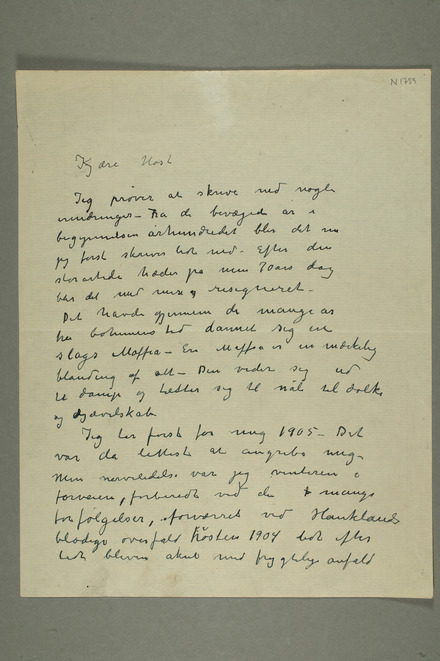 N 1789
Kjære Host
Jeg prøver at skrive ned nogle
erindringer – Fra de bevægede år i
begyndelsen århundredet blev det nu
jeg først skrives lidt ned – Efter den
storartede hæder på min 70 års dag
blev det med mere og resigneret –
Det havde gjennem de mange år
fra bohemens tid dannet sig en
slags Maffia – En Maffia er en mærkelig
blanding af alt – Den veder sig ud
til damp og tætter sig til nåle til dolke
og djævelskab
Jeg tar først for mig 1905 – Det
var da letteste at angribe mig –
Min nervelidelse var jeg vinteren i
forveien, forberedt ved de mange
forfølgelser, forværret ved Hauklands
blodige overfald Høsten 1904 lidt efter
lidt bleven akut med frygtelige anfald